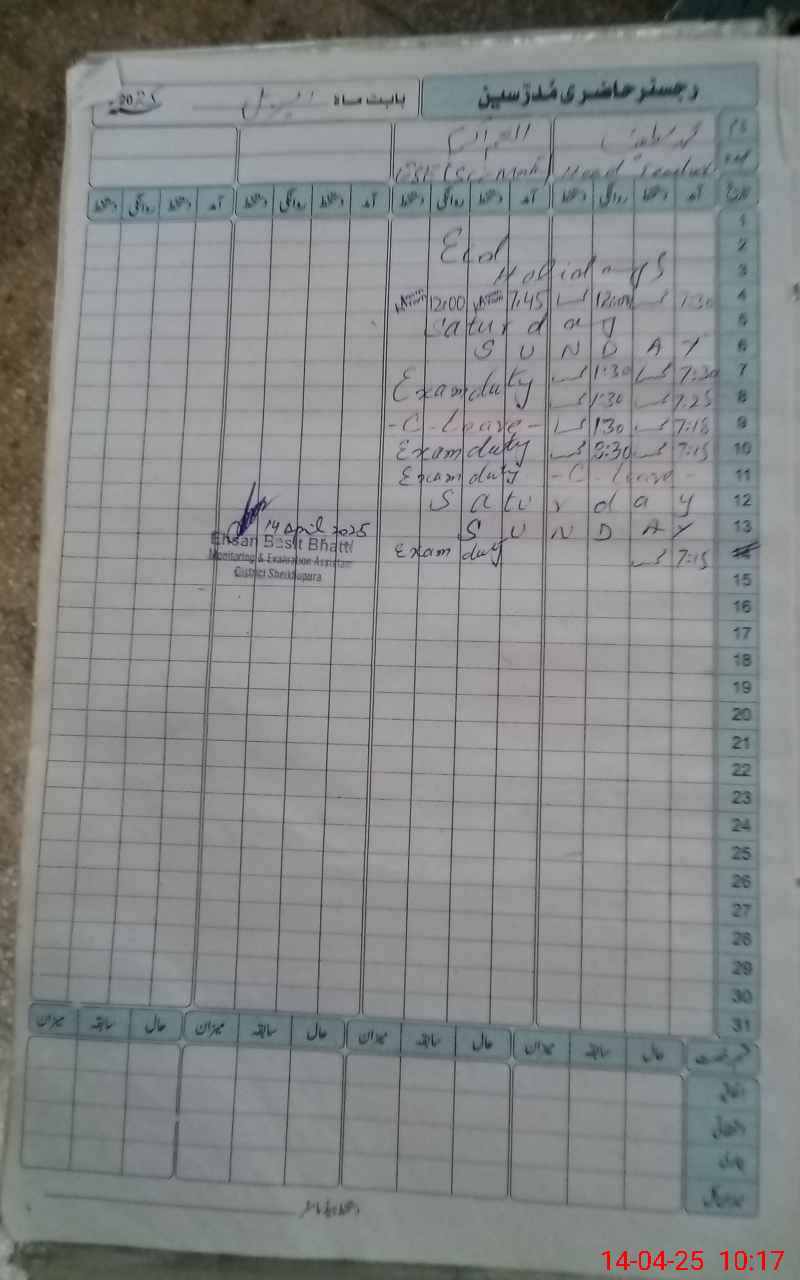 رجسٹر حاضری مُدرّسین
بابت ماہ اپریل 2025ء
نام
عہدہ Head Teacher ESE (Sci-Math)
تاریخ آمد دستخط روانگی دستخط آمد دستخط روانگی دستخط آمد دستخط روانگی دستخط آمد دستخط روانگی دستخط
1
2 Eid
3 Holidays
4 7:30 12:00 7:45 12:00
5 Saturday
6 SUNDAY
7 7:30 1:30 Exam duty
8 7:25 1:30
9 7:18 1:30 -C-Leave-
10 7:15 Exam duty
11 -C-Leave- Exam duty
12 Saturday
13 SUNDAY
7:15 Exam duty
14 April 2025
Ehsan Basit Bhatti
Monitoring & Evaluation Assistant
District Sheikhupura
15
16
17
18
19
20
21
22
23
24
25
26
27
28
29
30
31
حال سابقہ میزان حال سابقہ میزان حال سابقہ میزان حال سابقہ میزان
اتفاقی
14-04-25 10:17